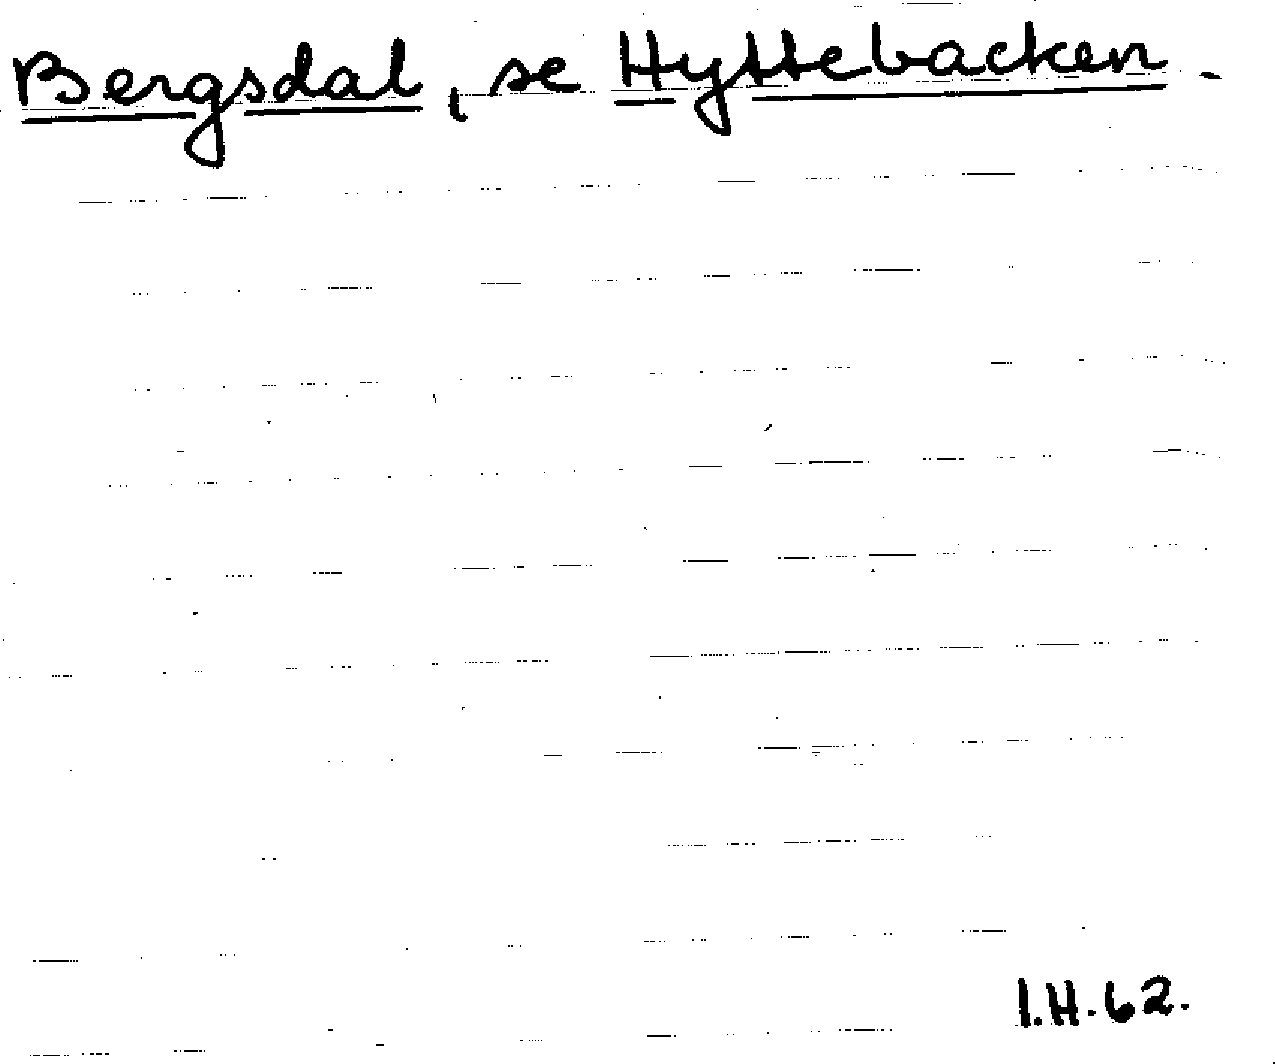 Bergsdal, se Hyttebacken.
I.H.62.